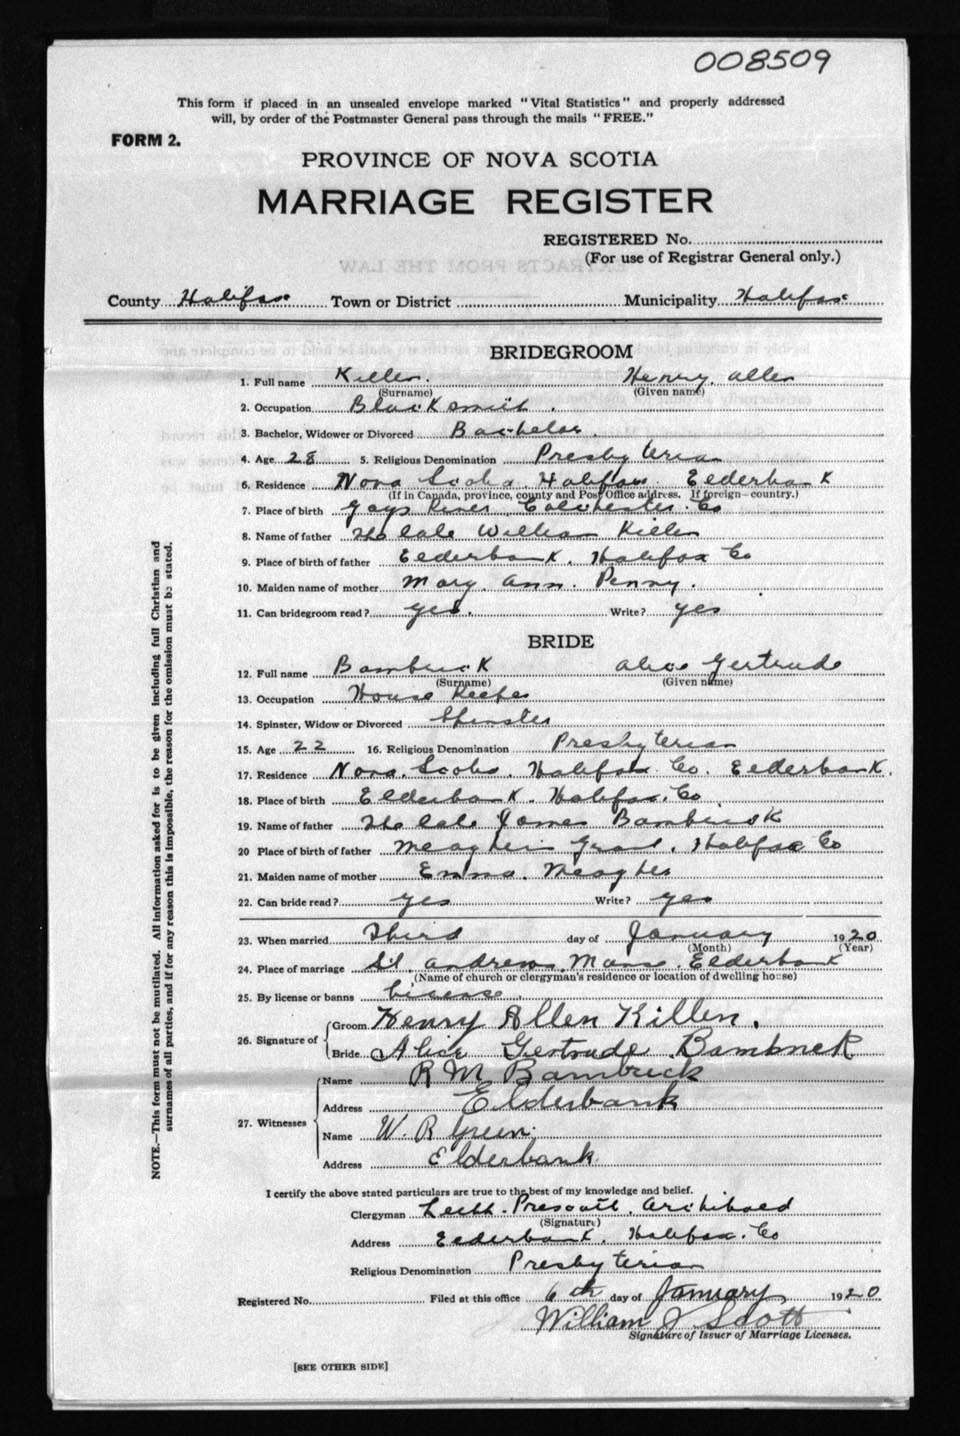 008509
This form if placed in an unsealed envelope marked "Vital Statistics" and properly addressed
will, by order of the Postmaster General pass through the mails "FREE."
FORM 2.
PROVINCE OF NOVA SCOTIA
MARRIAGE REGISTER
REGISTERED No.
(For use of Registrar General only.)
County Halifax Town or District Municipality Halifax
BRIDEGROOM
1. Full name Killen. Henry Allen
(Surname) (Given name)
2. Occupation Blacksmith.
3. Bachelor, Widower or Divorced Bachelor.
4. Age 28 5. Religious Denomination Presbyterian
6. Residence Nova Scotia. Halifax. Elderbank
(If in Canada, province, county and Post Office address. If foreign—country.)
7. Place of birth Gays River, Colchester. Co
8. Name of father The late William Killen
9. Place of birth of father Elderbank. Halifax Co
10. Maiden name of mother Mary Ann. Penny.
11. Can bridegroom read? yes. Write? yes
BRIDE
12. Full name Bambrick Alice Gertrude
(Surname) (Given name)
13. Occupation House Keeper
14. Spinster, Widow or Divorced Spinster
15. Age 22 16. Religious Denomination Presbyterian
17. Residence Nova. Scotia. Halifax Co. Elderbank.
18. Place of birth Elderbank. Halifax. Co
19. Name of father The late James Bambrick
20 Place of birth of father Meaghers Grant. Halifax Co
21. Maiden name of mother Emma. Meagher
22. Can bride read? yes Write? yes
23. When married Third day of January 1920
(Month) (Year)
24. Place of marriage St Andrews Manse. Elderbank
(Name of church or clergyman's residence or location of dwelling house)
25. By license or banns License.
26. Signature of
Groom Henry Allen Killen.
Bride Alice Gertrude Bambrick
27. Witnesses
Name R M Bambrick
Address Elderbank
Name W. R Green.
Address Elderbank
I certify the above stated particulars are true to the best of my knowledge and belief.
Clergyman Prescott. Archibald
(Signature)
Address Elderbank. Halifax. Co
Religious Denomination Presbyterian
Registered No. Filed at this office 6th day of January, 1920
William J Scott
Signature of Issuer of Marriage Licenses.
[SEE OTHER SIDE]
NOTE.—This form must not be mutilated. All information asked for is to be given including full Christian and
surnames of all parties, and if for any reason this is impossible, the reason for the omission must be stated.